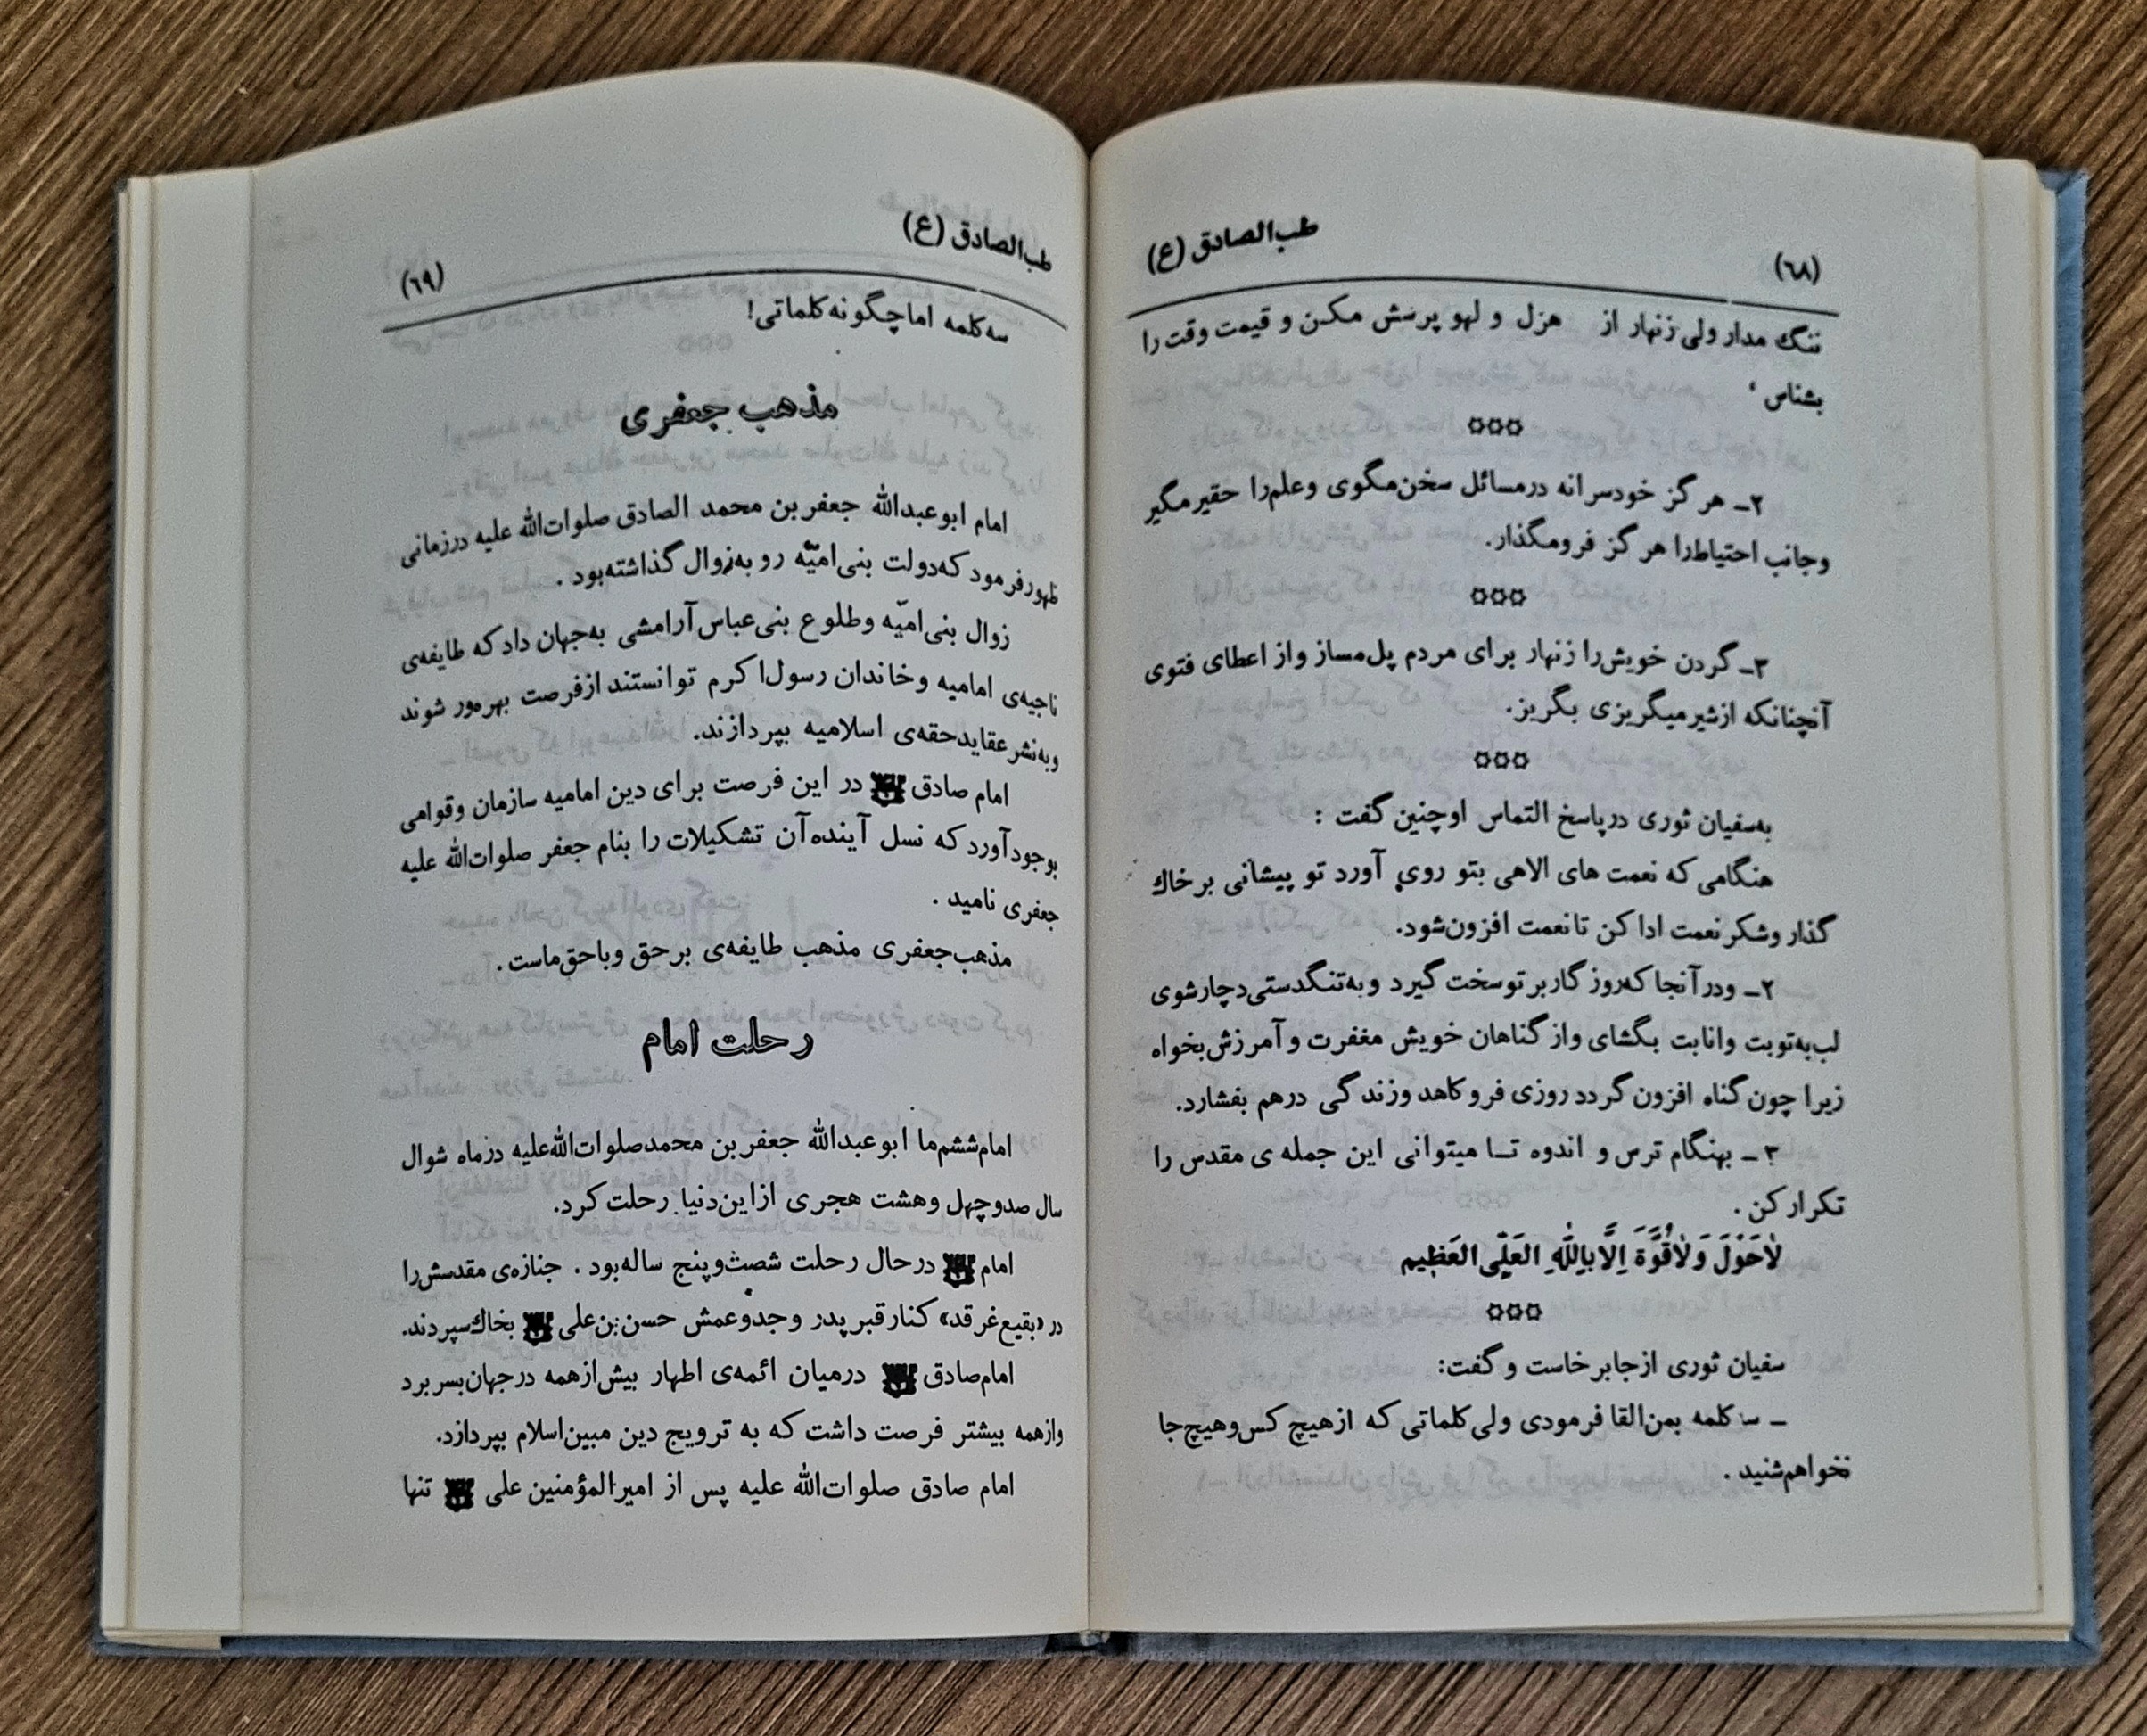 (٦٨)
طب‌الصادق (ع)
ننگ مدار ولی زنهار از هزل و لهو پرسش مکن و قیمت وقت را
بشناس
✩✩✩
٢- هرگز خودسرانه درمسائل سخن‌مگوی وعلم‌را حقیر مگیر
وجانب احتیاط‌را هرگز فرومگذار.
✩✩✩
٣- گردن خویش‌را زنهار برای مردم پل‌مساز واز اعطای فتوی
آنچنانکه ازشیر میگریزی بگریز.
✩✩✩
به‌سفیان ثوری درپاسخ التماس اوچنین گفت :
هنگامی که نعمت های الاهی بتو روی آورد تو پیشانی برخاك
گذار وشکر نعمت اداکن تا نعمت افزون‌شود.
٢- ودرآنجا که‌روزگار بر توسخت گیرد وبه‌تنگدستی‌دچارشوی
لب‌به‌توبت وانابت بگشای واز گناهان خویش مغفرت و آمرزش‌بخواه
زیرا چون گناه افزون گردد روزی فروکاهد وزندگی درهم بفشارد.
٣- بهنگام ترس و اندوه تـا میتوانی این جمله ی مقدس را
تکرارکن .
لاٰحَوْلَ وَلاٰقُوَّةَ اِلَّا بِاللّٰهِ العَلِّی العَظِیم
✩✩✩
سفیان ثوری ازجا برخاست و گفت:
- سه کلمه بمن‌القا فرمودی ولی‌کلماتی که ازهیچ کس‌وهیچ‌جا
نخواهم‌شنید .
طب‌الصادق (ع)
(٦٩)
سه‌کلمه اماچگونه‌کلماتی!
مذهب جعفری
امام ابوعبدالله جعفر بن محمد الصادق صلوات‌الله علیه درزمانی
ظهور فرمود که‌دولت بنی‌امیّه رو به‌زوال گذاشته‌بود .
زوال بنی‌امیّه وطلوع بنی‌عباس آرامشی به‌جهان داد که طایفه‌ی
ناجیه‌ی امامیه وخاندان رسول‌اکرم توانستند ازفرصت بهره‌ور شوند
وبه‌نشر عقایدحقه‌ی اسلامیه بپردازند.
امام صادق در این فرصت برای دین امامیه سازمان وقوامی
بوجودآورد که نسل آینده آن تشکیلات را بنام جعفر صلوات‌الله علیه
جعفری نامید .
مذهب‌جعفری مذهب طایفه‌ی برحق وباحق‌ماست .
رحلت امام
امام‌ششم‌ما ابوعبدالله جعفر بن محمدصلوات‌الله‌علیه درماه شوال
سال صدوچهل وهشت هجری ازاین‌دنیا رحلت‌کرد.
امام درحال رحلت شصت‌وپنج ساله‌بود . جنازه‌ی مقدسش‌را
در «بقیع‌غرقد» کنار قبر پدر وجدوعمش حسن‌بن‌علی بخاك‌سپردند.
امام‌صادق درمیان ائمه‌ی اطهار بیش‌ازهمه درجهان‌بسر برد
وازهمه بیشتر فرصت داشت که به ترویج دین مبین‌اسلام بپردازد.
امام صادق صلوات‌الله علیه پس از امیرالمؤمنین علی تنها